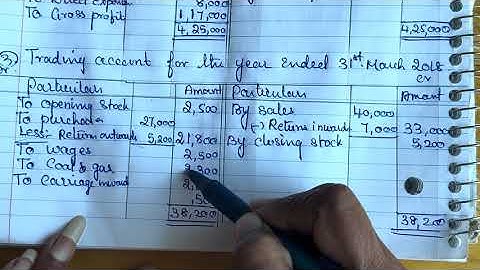 To Gross profit 1,17,000
4,25,000 4,25,000
3) Trading account for the year ended 31st March 2018
Dr. Cr
Particulars Amount Particulars Amount
To opening stock 2,500 By sales 40,000
To purchases 27,000 (-) Return inward 7,000 33,000
Less:- Return outward 5,200 21,800 By closing stock 5,200
To wages 2,500
To Coal & gas
To Carriage inward
38,200 38,200